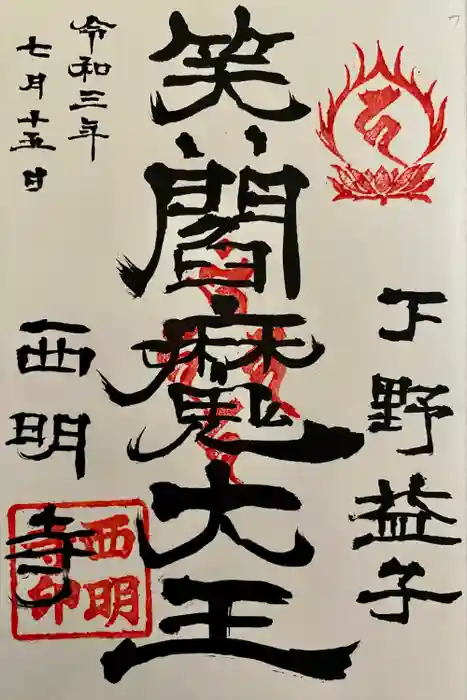 下野益子
笑閻魔大王
令和三年
七月十五日
西明寺
西明
寺印